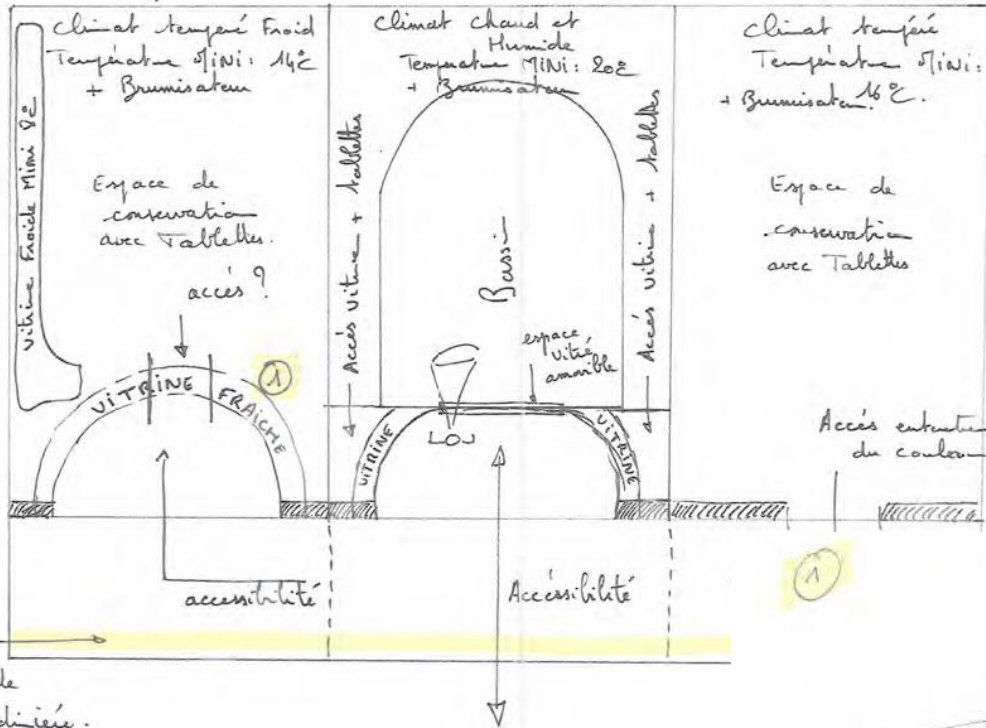 Climat tempéré Froid
Température Mini: 14°C
+ Brumisateur
Vitrine Froide Mini 8°C
Espace de
conservation
avec Tablettes.
accès ?
1
VITRINE FRAICHE
accessibilité
Climat Chaud et
Humide
Temperature Mini: 20°C
+ Brumisateur
Accès vitrine + tablettes
Bassin
Accès vitrine + tablettes
espace
vitré
amovible
VITRINE
VITRINE
Accéssibilité
Climat tempéré
Température Mini:
+ Brumisateur. 16°C.
Espace de
conservation
avec Tablettes
Accès entretien
du couloir
1
de